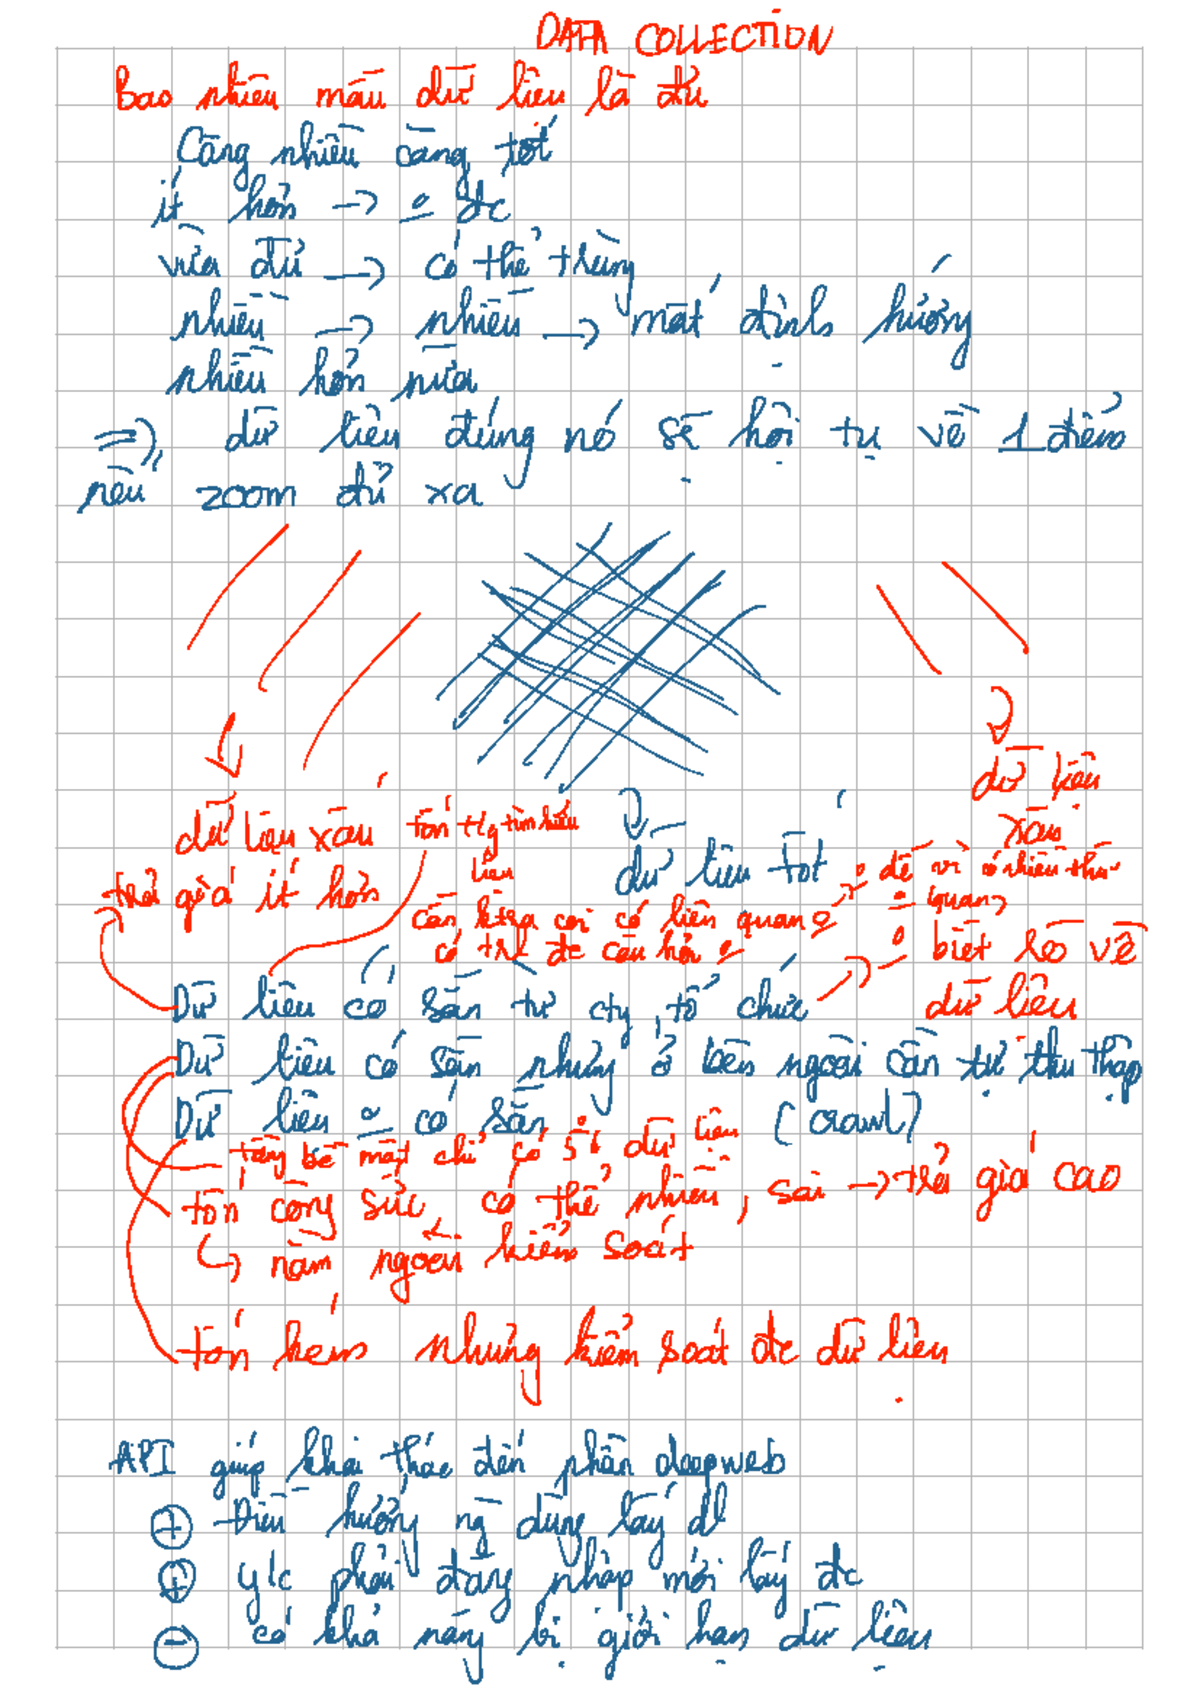 DATA COLLECTION
Bao nhiêu mẫu dữ liệu là đủ
Càng nhiều càng tốt
ít hơn → o đc
vừa đủ → có thể trùng
nhiều → nhiễu → mất định hướng
nhiều hơn nữa
=> dữ liệu đúng nó sẽ hội tụ về 1 điểm
nếu zoom đủ xa
dữ liệu
xấu
dữ liệu xấu
tốn tg tìm hiểu
liệu
dữ liệu tốt
trả giá ít hơn
cần ktra coi có liên quan o
có trl đc câu hỏi o
→ o dễ vì có nhiều thứ
o quan
→ o biết rõ về
dữ liệu
Dữ liệu có sẵn từ cty, tổ chức
Dữ liệu có sẵn nhưng ở bên ngoài cần tự thu thập
Dữ liệu o có sẵn (crawl)
tầng bề mặt chỉ có 5% dữ liệu
tốn công sức, có thể nhiễu, sai → trả giá cao
↳ nằm ngoài kiểm soát
tốn kém nhưng kiểm soát đc dữ liệu
API giúp khai thác đến phần deepweb
+ Điều hướng ng dùng lấy dl
+ y/c phải đăng nhập mới lấy đc
- có khả năng bị giới hạn dữ liệu